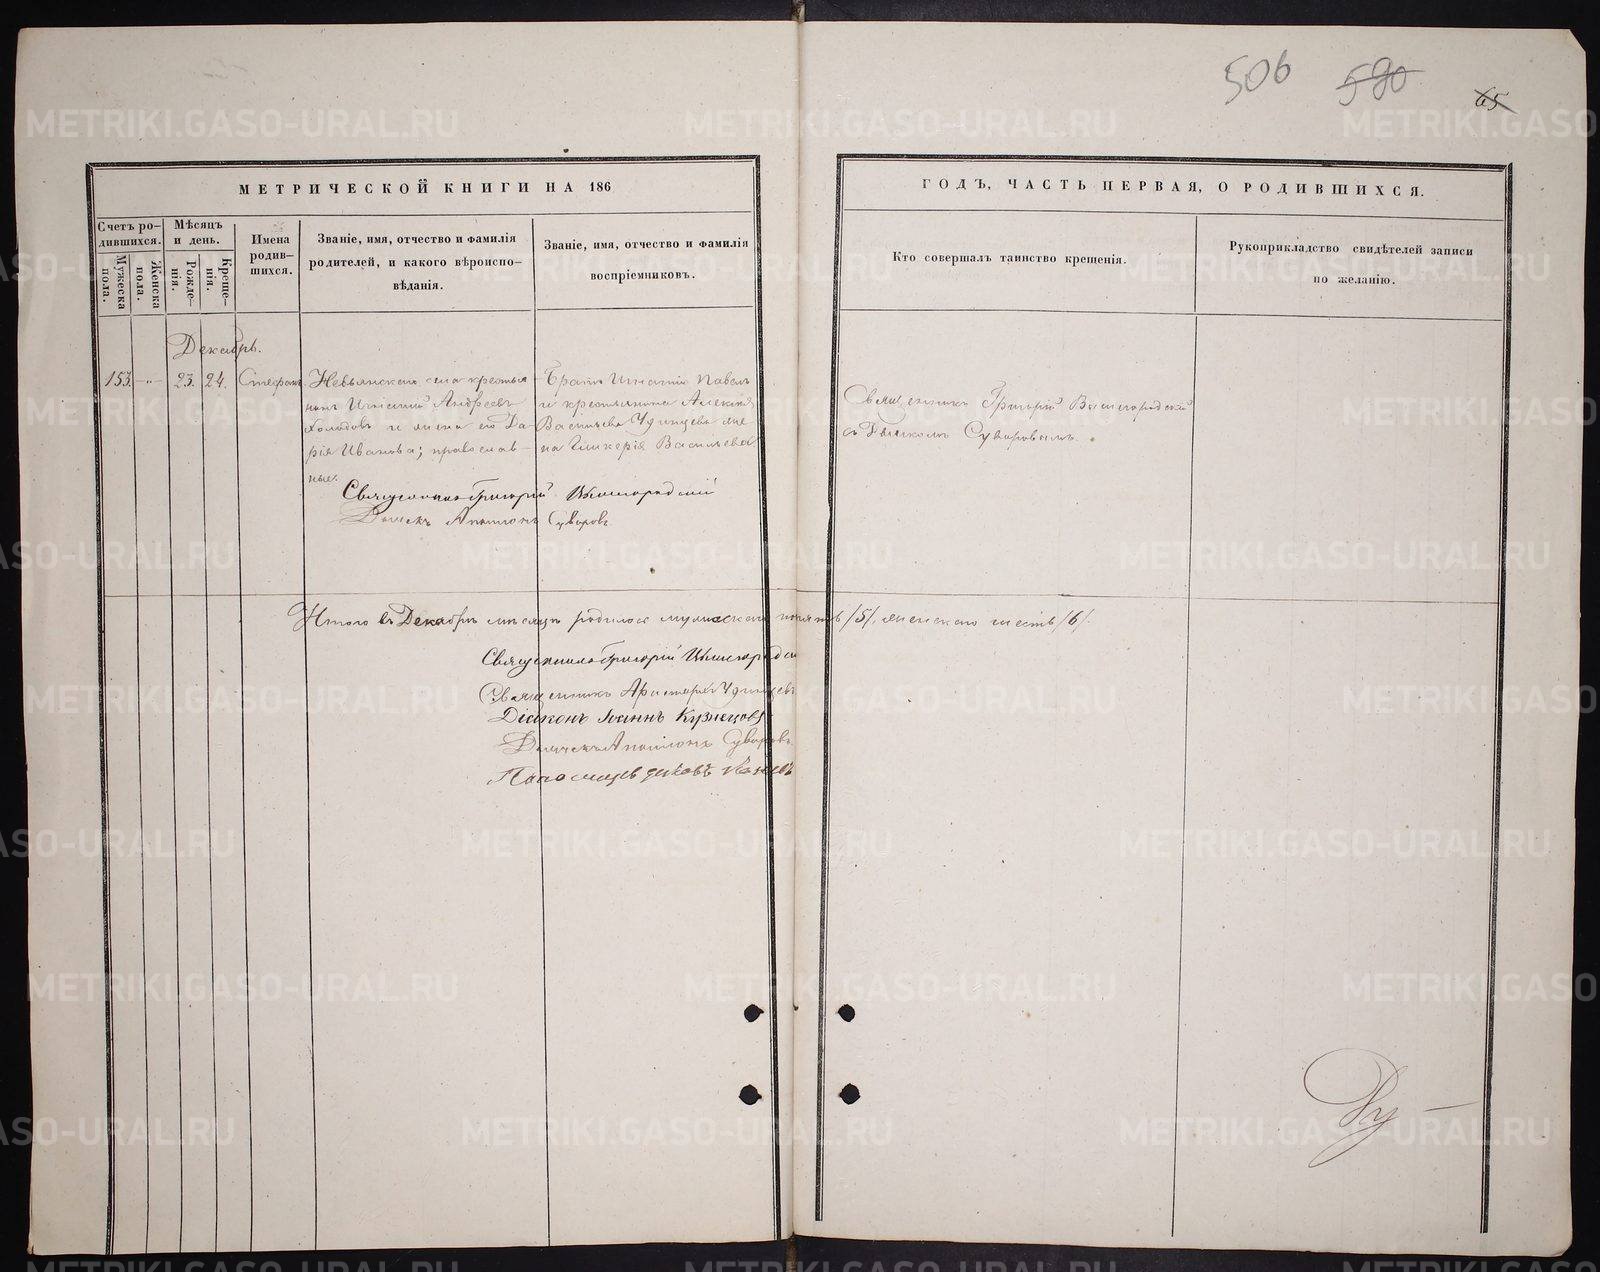 506 590 65
МЕТРИЧЕСКОЙ КНИГИ НА 186
ГОДЪ, ЧАСТЬ ПЕРВАЯ, О РОДИВШИХСЯ.
Счетъ ро-
дившихся.
Мужеска
пола.
Женска
пола.
Мѣсяцъ
и день.
Рожде-
нія.
Креще-
нія.
Имена
родив-
шихся.
Званіе, имя, отчество и фамилія
родителей, и какого вѣроиспо-
вѣданія.
Званіе, имя, отчество и фамилія
воспріемниковъ.
Кто совершалъ таинство крещенія.
Рукоприкладство свидѣтелей записи
по желанію.
Декабрь.
153. -"- 23. 24. Стефанъ
Невьянскаго села крестья-
нинъ Игнатій Андреевъ
Холодовъ и жена его Да-
рія Иванова; православ-
ные.
Братъ Игнатія Павелъ
и крестьянина Алексѣя
Васильева Удинцева же-
на Гликерія Васильева
Священникъ Григорій
съ Дьячкомъ Суворовымъ.
Священникъ Григорій
Дьячекъ Аполлонъ Суворовъ
Итого въ Декабрѣ мѣсяцѣ родилось мужескаго пола пять /5/, женскаго шесть /6/.
Священникъ Григорій
Священникъ Аристархъ Удинцевъ
Діаконъ Іоаннъ Кузнецовъ
Дьячекъ Аполлонъ Суворовъ
METRIKI.GASO-URAL.RU